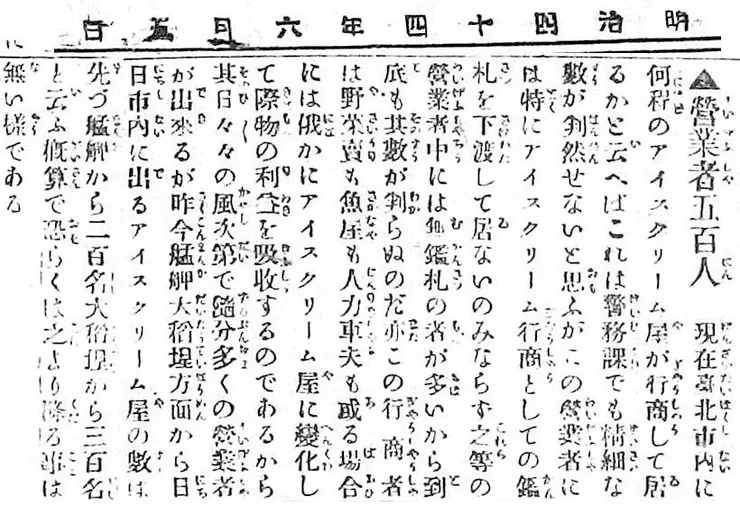 明治四十四年六月五日
▲營業者五百人 現在臺北市内に
何程のアイスクリーム屋が行商して居
るかと云へばこれは警務課でも精細な
數が判然せないと思ふがこの營業者に
は特にアイスクリーム行商としての鑑
札を下渡して居ないのみならず之等の
營業者中には無鑑札の者が多いから到
底も其數が判らぬのだ亦この行商者
は野菜賣も魚屋も人力車夫も或る場合
には俄かにアイスクリーム屋に變化し
て際物の利益を吸收するのであるから
其日々々の風次第で隨分多くの營業者
が出來るが昨今艋舺大稻埕方面から日
日市内に出るアイスクリーム屋の數は
先づ艋舺から二百名大稻埕から三百名
と云ふ概算で恐らくは之より降る事は
無い樣である